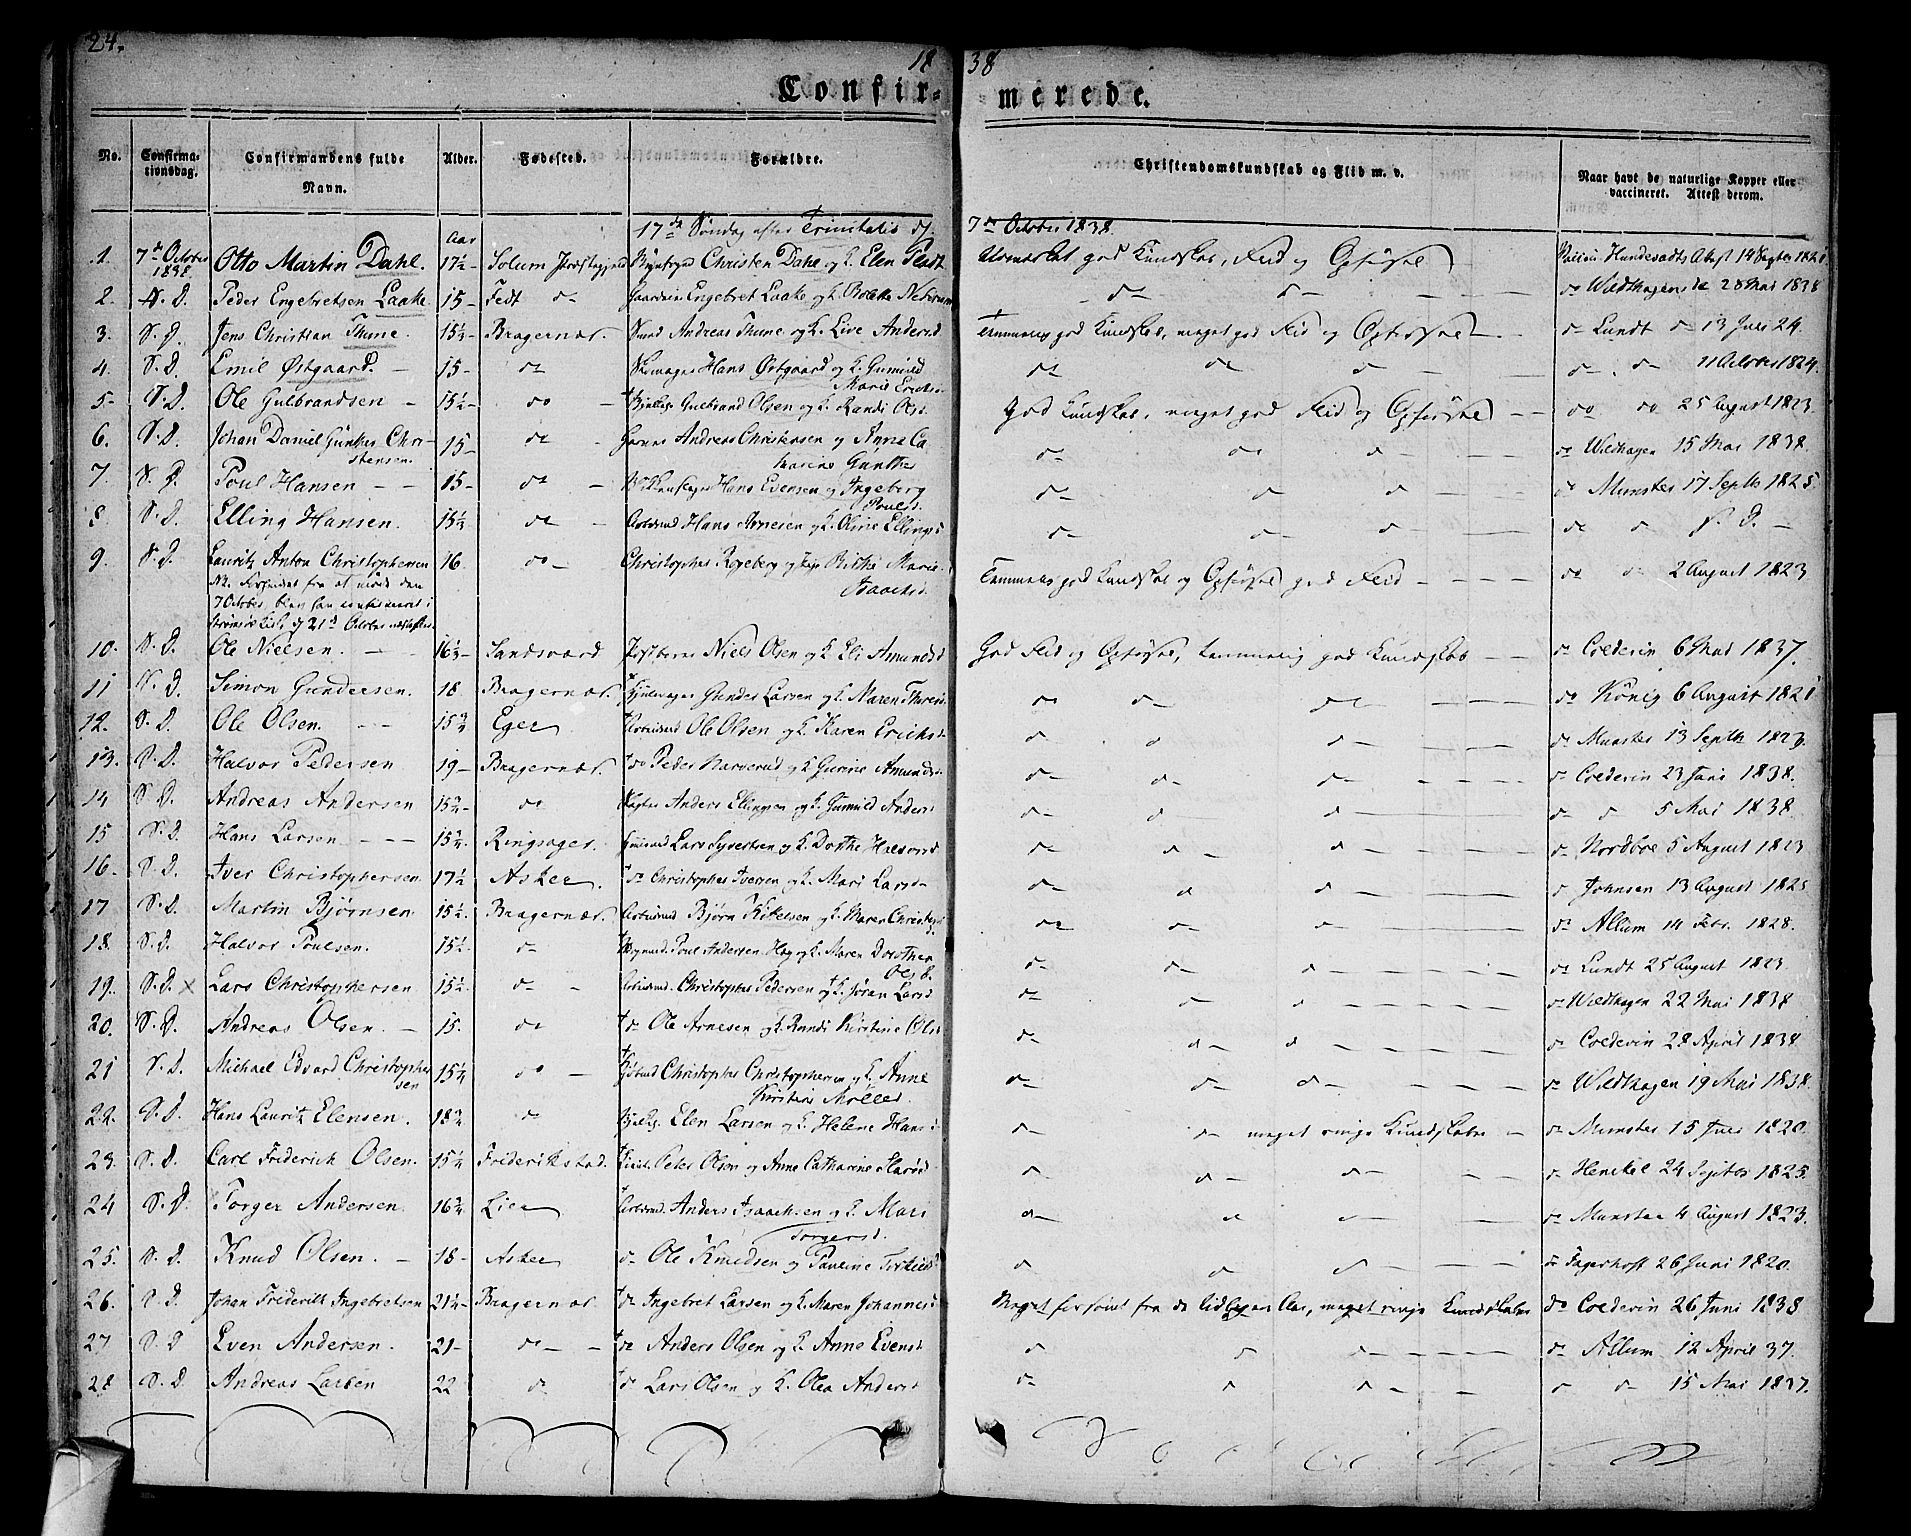 24.
18 38
Confir- merede.
No. Confirma- tionsdag. Confirmandens fulde Navn. Alder. Fødested. Forældre. Christendomskundskab og Flid m. v. Naar havt de naturlige Kopper eller vaccineret. Attest derom.
17de Søndag efter Trinitatis d. 7de October 1838.
Aar
1. 7de October 1838. Otto Martin Dahl. 17½ Solum Christen Dahl og K. Elen god Kundskab, Flid og Opførsel
2. S. D. Peder Engebretsen Laake 15 - do Engebret Laake og K. do do do Wildhagen do 28 Mai 1838
3. S. D. Jens Christian Thune. 15½ Bragernæs. Andreas Thune og K. Live Andersd Temmelig god Kundskab, meget god Flid og Opførsel do Lundt do 13 Juli 24.
4. S. D. Emil Østgaard. - 15 - do Hans Østgaard og K. Gunnild Marie Ericks. do do do do do 11 October 1824.
5 - S. D. Ole Gulbrandsen - 15½ - do - Gulbrand Olsen og K. Randi Olsd. God Kundskab, meget god Flid og Opførsel - - do do 25 August 1823
6. S. D. Johan Daniel Günther Chri- stensen. 15 - do - Andreas Christensen og Anne Ca- thrine Günther do do do do Wildhagen 15 Mai 1838.
7. S. D. Poul Hansen - - 15 - do - Hans Evensen og Ingeborg Poulsd. do do do do Munster 17 Septb 1825.
8 S. D. Elling Hansen. 15½ do - Hans Arnesen og K. Oline Ellingsd do do do do do S. D. -
9. S. D. Lauritz Anton Christophersen 16. do - Christopher Rogeberg og Birthe Marie Isaachsd. Temmelig god Kundskab og Opførsel god Flid - - - - do do 2 August 1823
7 October, blev han confirmeret i
Kirke d. 21de October
10. S. D. Ole Nielsen. - - 16½ - Sandsværd Niels Olsen og K. Eli Amundsd God Flid og Opførsel, temmelig god Kundskab - - do Coldevin 6 Mai 1837.
11 S. D. Simon Gundersen. 18 Bragernæs. Gunder Larsen og K. Maren do do do do König 6 August 1821
12. S. D. Ole Olsen. - - 15¾ Eger Ole Olsen og K. Karen Ericksd. do do do do Munster 13 Septb 1823.
13. S. D. Halvor Pedersen 19 - Bragernæs. do Peder Narverud og K. Gurine Amundsd. do do do do Coldevin 23 Juni 1838.
14 S. D. Andreas Andersen 15¾ - do Anders Ellingsen og K. Gunnild Andersd do do do do do 5 Mai 1838.
15 S. D. Hans Larsen - - - Ringsager. Lars Syvertsen og K. Dorthe Halvorsd do do do do Nordboe 5 August 1823
16. S. D. Iver Christophersen 17½ Asker. do Christopher Iversen og K. Mari Larsd. do do do do Johnsen 13 August 1825
17 S. D. Martin Bjørnsen 15½. Bragernæs. Bjørn Kittelsen og K. Maren do do do do Allum 14 Febr. 1828.
18. S. D. Halvor Poulsen. 15½ do Poul Andersen og K. Maren Dorothea Olsd. do do do do Lundt 25 August 1823.
19. S. D. x Lars Christophersen 15½ do - Christopher Pedersen og K. Jøran Larsd do do do do Wildhagen 22 Mai 1838
20. S. D. Andreas Olsen. - 15. do do Ole Arnesen og K. Randi Kirstine Olsd do do do do Coldevin 28 April 1838.
21 S. D. Michael Edvard Christopher- sen 15¼ do - Christopher Christophersen og K. Anne Kirstine Møller. do do do do Wildhagen 19 Mai 1838.
22. S. D. Hans Lauritz Elensen. 18¾ do Elen Larsen og K. Helene Hansd do do meget ringe Kundskaber - do Munster 15 Juni 1820.
23. S. D. Carl Friderich Olsen. 15¼ Friderikstad. Peter Olson og Anne Catharine do do do do Henckel 24 Septbr 1825.
24 S. D. Torger Andersen. 16¾ Lier Anders Isaachsen og K. Mari Torgersd. do do do do Munster 4 August 1823.
25. S. D. Knud Olsen. - 18 - Asker do Ole Knudsen og Pauline do do do do Fagerhoft 26 Juni 1820.
26. S. D. Johan Friderich Ingebretsen 21¼ - Bragernæs. do Ingebret Larsen og K. Maren Johannesd Meget forsømt fra de tidligere Aar, meget ringe Kundskaber do Coldevin 26 Juni 1838
27 S. D Even Andersen. 21 - do - - do Anders Olsen og K. Anne Evensd do do do do Allum 12 April 37.
28 S. D Andreas Larsen 22 do do Lars Olsen og K. Olea Andersd do do do do do 15 Mai 1837.